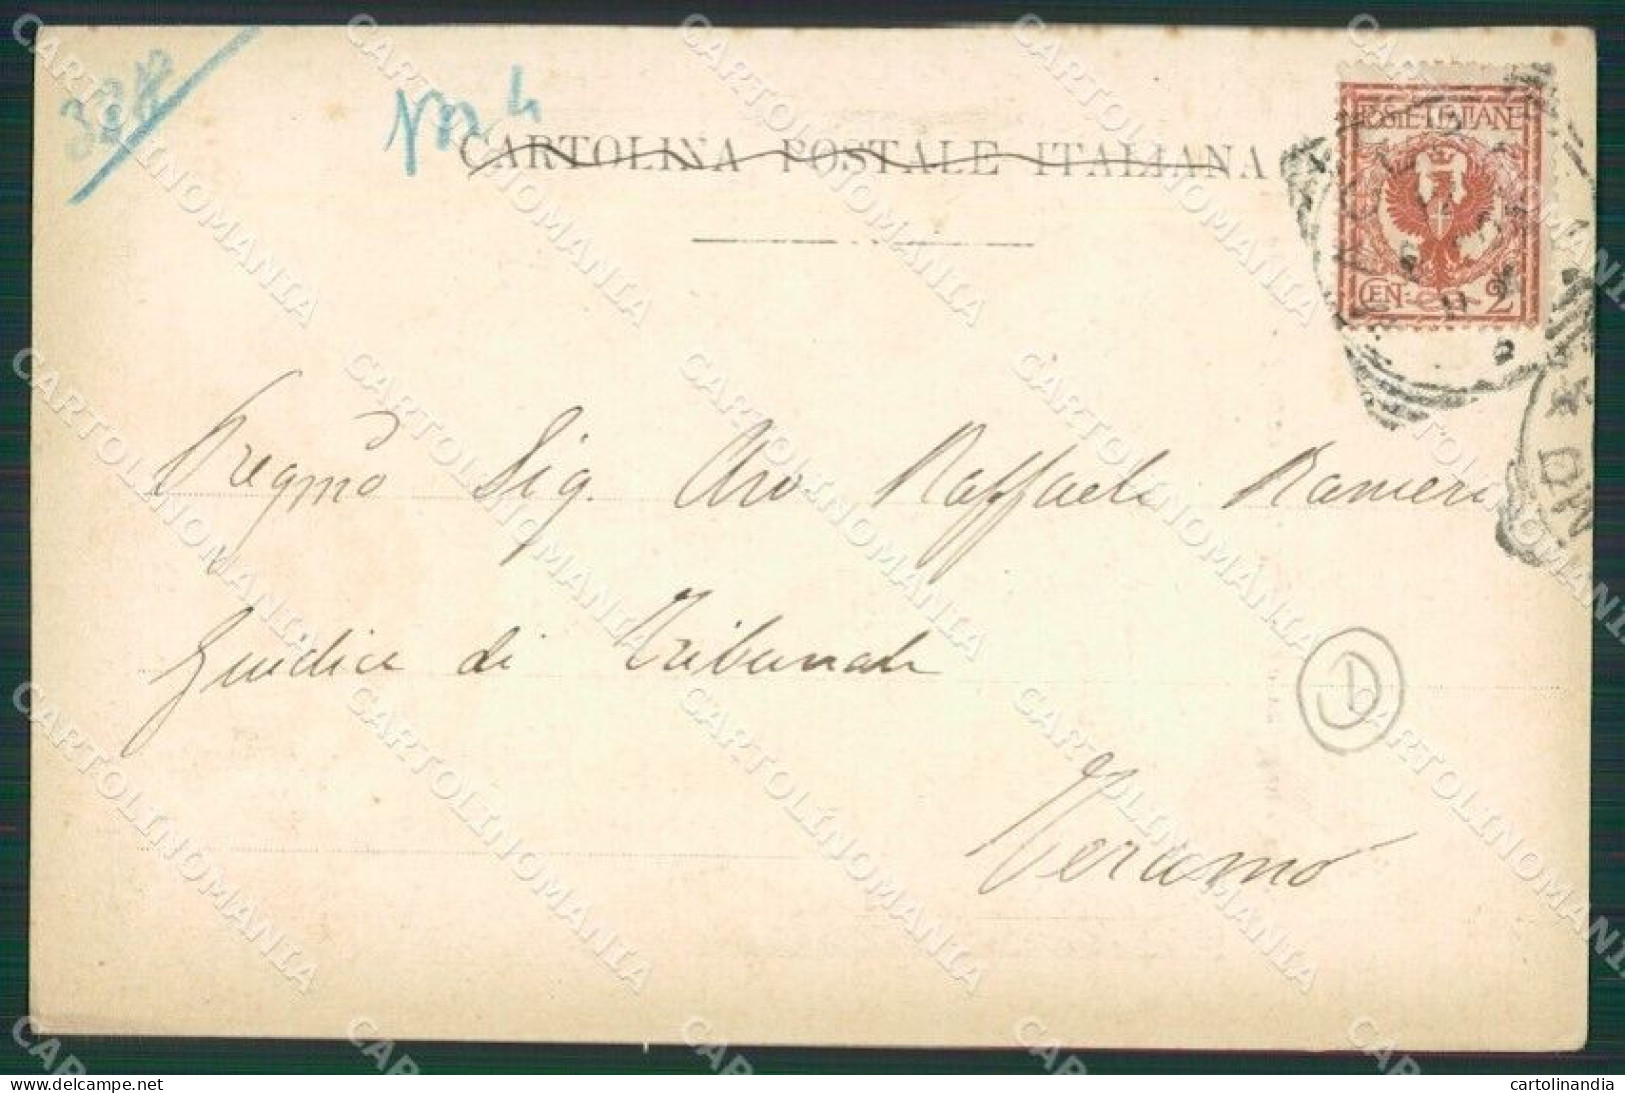 CARTOLINA POSTALE ITALIANA
POSTE ITALIANE
CEN. 2
Pregmo Sig. Avv Raffaele Ranieri
Giudice di Tribunale
Teramo
D
CARTOLINOMANIA
cartolinandia